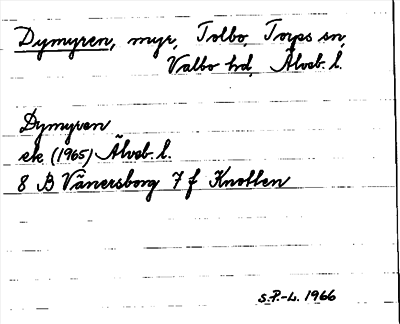 Dymyren, myr, Tolbo, Torps sn,
Valbo hd, Älvsb. l.
Dymyren
ek. (1965) Älvsb. l.
8 B Vänersborg 7 f Knotten
S.P.-L. 1966